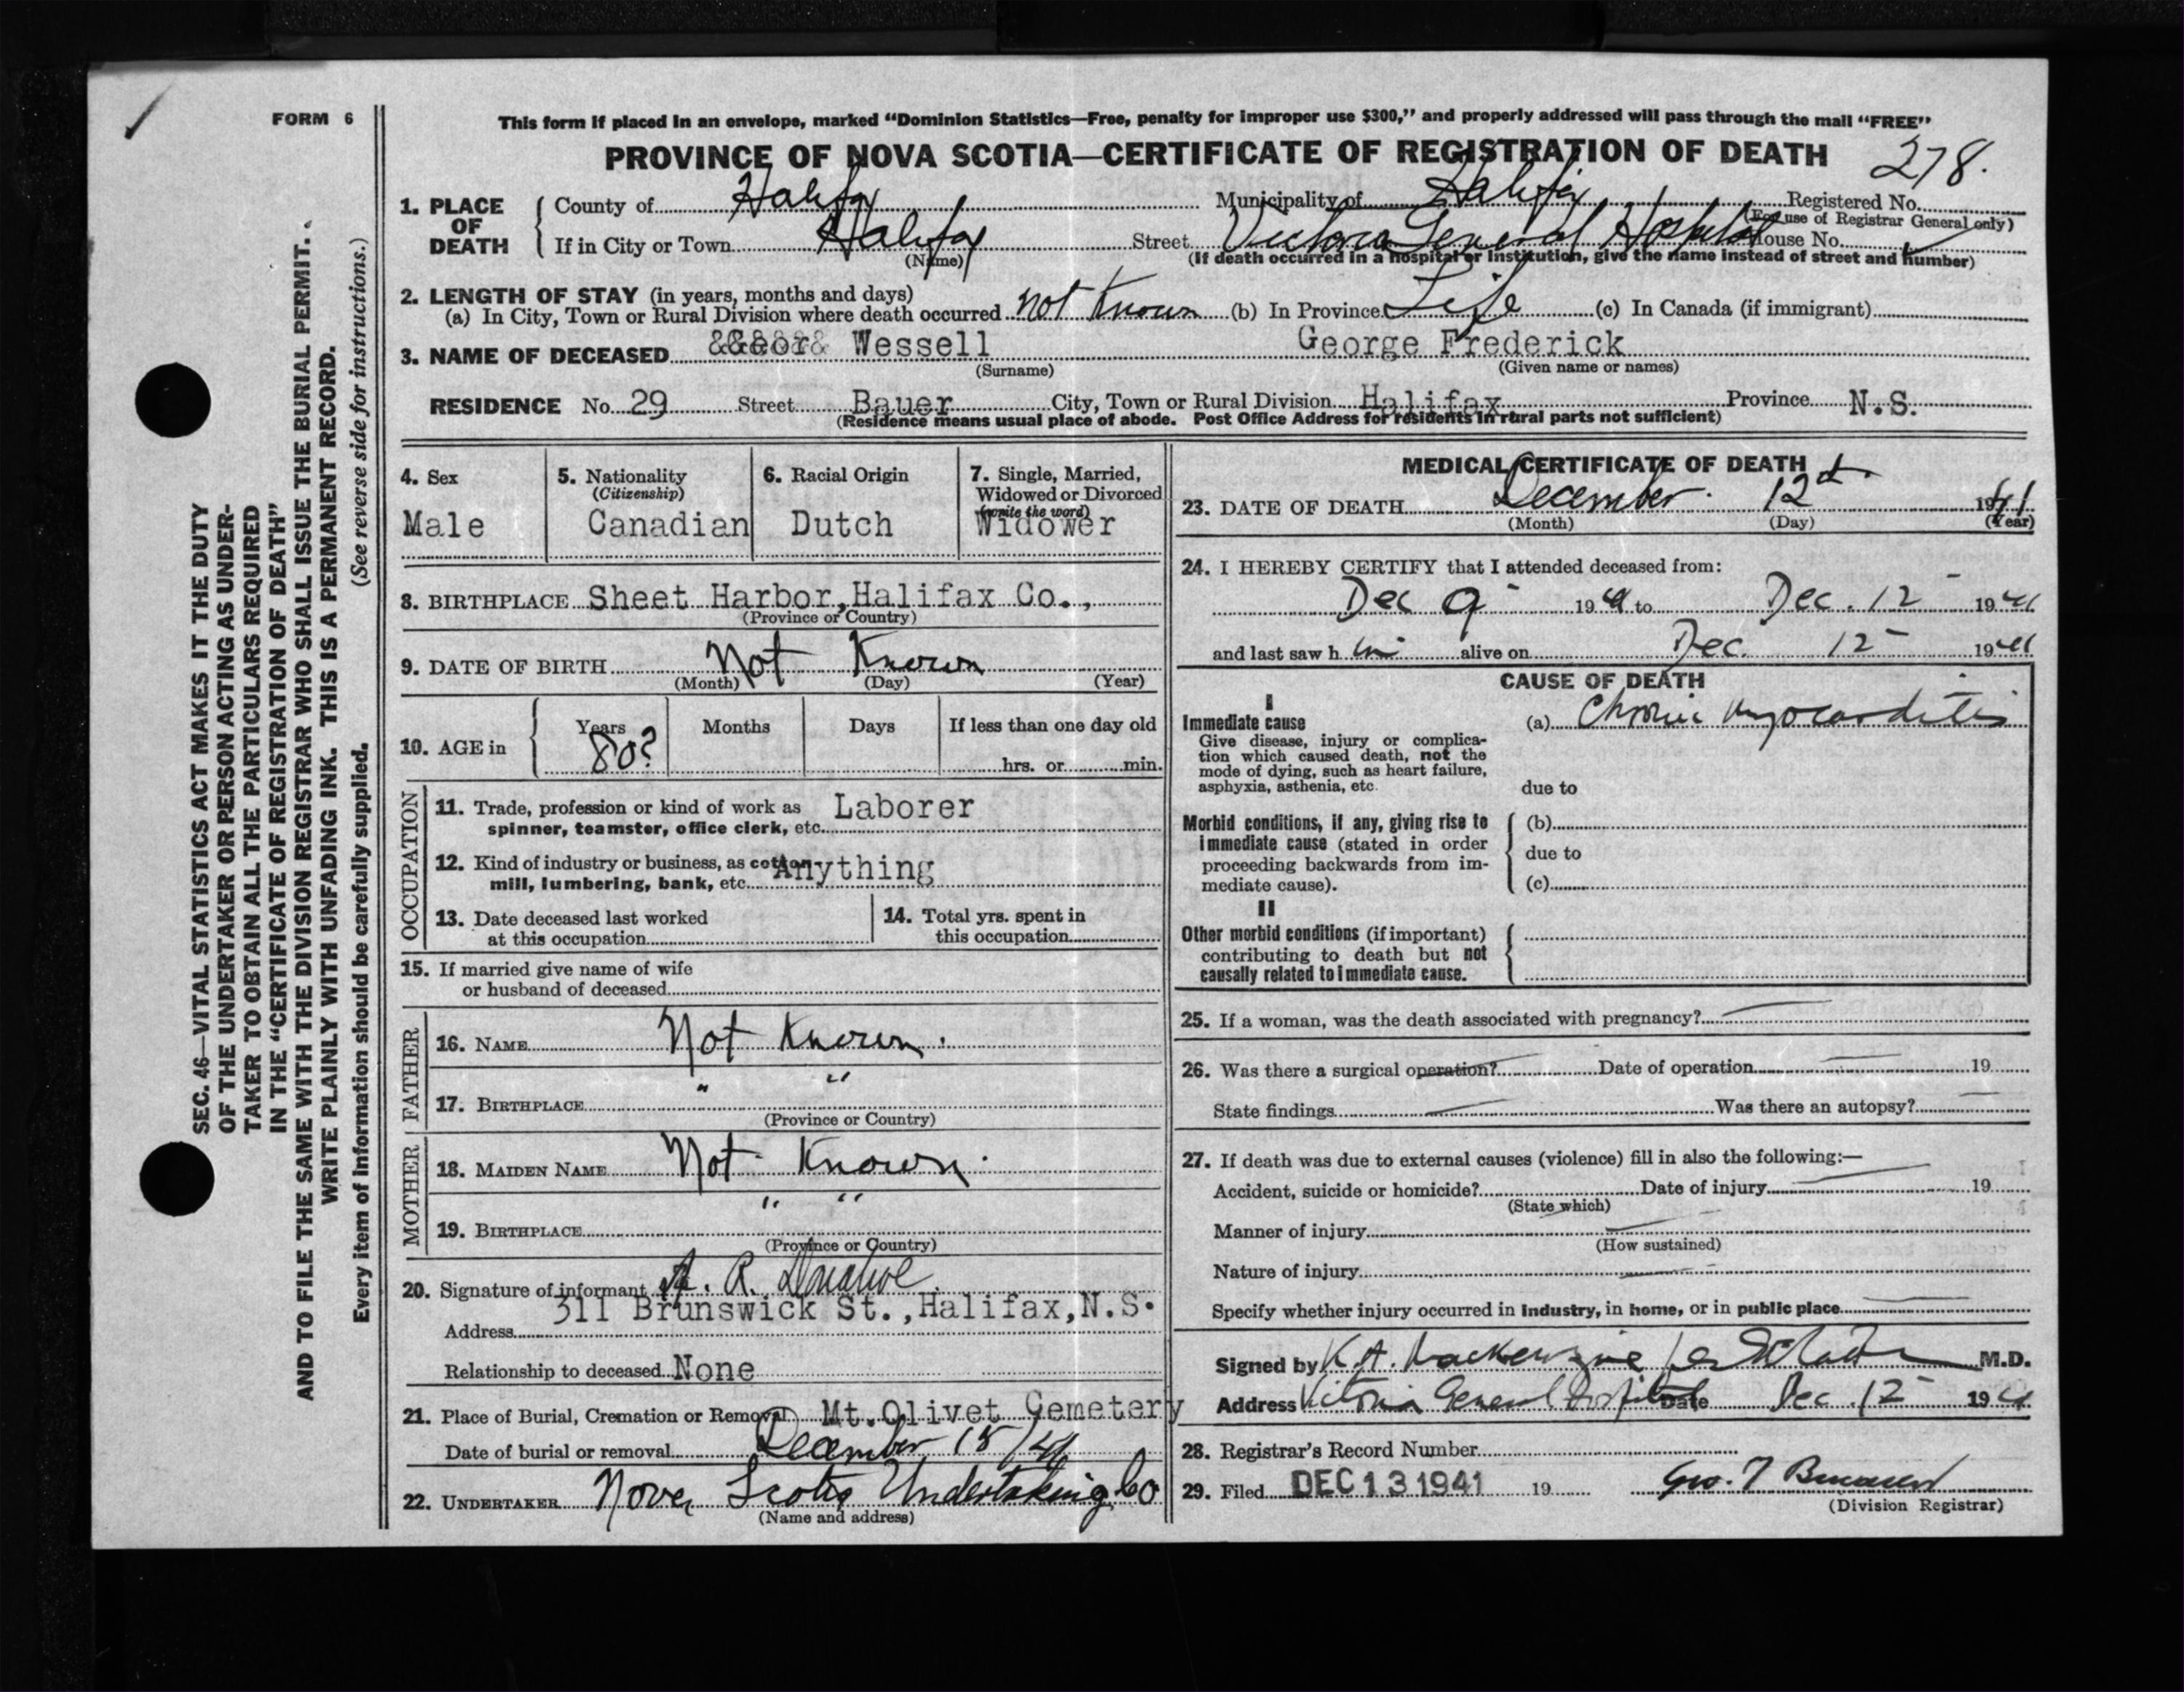 FORM 6
This form if placed in an envelope, marked “Dominion Statistics—Free, penalty for improper use $300,” and properly addressed will pass through the mail “FREE”
PROVINCE OF NOVA SCOTIA—CERTIFICATE OF REGISTRATION OF DEATH 278.
1. PLACE OF DEATH
County of Halifax Municipality of Halifax Registered No.
(For use of Registrar General only)
If in City or Town Halifax Street Victoria General Hospital House No.
(Name) (If death occurred in a hospital or institution, give the name instead of street and number)
2. LENGTH OF STAY (in years, months and days)
(a) In City, Town or Rural Division where death occurred not Known (b) In Province Life (c) In Canada (if immigrant)
3. NAME OF DECEASED Wessell George Frederick
(Surname) (Given name or names)
RESIDENCE No. 29 Street Bauer City, Town or Rural Division Halifax Province N.S.
(Residence means usual place of abode. Post Office Address for residents in rural parts not sufficient)
4. Sex
Male
5. Nationality
(Citizenship)
Canadian
6. Racial Origin
Dutch
7. Single, Married,
Widowed or Divorced
(write the word)
Widower
8. BIRTHPLACE Sheet Harbor, Halifax Co.,
(Province or Country)
9. DATE OF BIRTH Not Known
(Month) (Day) (Year)
10. AGE in
Years Months Days If less than one day old
80? hrs. or min.
OCCUPATION
11. Trade, profession or kind of work as Laborer
spinner, teamster, office clerk, etc.
12. Kind of industry or business, as cotton Anything
mill, lumbering, bank, etc.
13. Date deceased last worked
at this occupation
14. Total yrs. spent in
this occupation
15. If married give name of wife
or husband of deceased
FATHER
16. NAME Not Known.
17. BIRTHPLACE " "
(Province or Country)
MOTHER
18. MAIDEN NAME Not Known.
19. BIRTHPLACE " "
(Province or Country)
20. Signature of informant A. R. Donahoe
311 Brunswick St., Halifax, N.S.
Address
Relationship to deceased None
21. Place of Burial, Cremation or Removal Mt. Olivet Cemetery
Date of burial or removal December 15/41
22. UNDERTAKER Nova Scotia Undertaking Co
(Name and address)
MEDICAL CERTIFICATE OF DEATH
23. DATE OF DEATH December 12th 1941
(Month) (Day) (Year)
24. I HEREBY CERTIFY that I attended deceased from:
Dec 9 1941 to Dec. 12 1941
and last saw h im alive on Dec. 12 1941
CAUSE OF DEATH
I
Immediate cause (a) Chronic myocarditis
Give disease, injury or complica-
tion which caused death, not the
mode of dying, such as heart failure,
asphyxia, asthenia, etc. due to
Morbid conditions, if any, giving rise to (b)
immediate cause (stated in order
proceeding backwards from im- due to
mediate cause). (c)
II
Other morbid conditions (if important)
contributing to death but not
causally related to immediate cause.
25. If a woman, was the death associated with pregnancy?
26. Was there a surgical operation? Date of operation 19
State findings Was there an autopsy?
27. If death was due to external causes (violence) fill in also the following:—
Accident, suicide or homicide? Date of injury 19
(State which)
Manner of injury
(How sustained)
Nature of injury
Specify whether injury occurred in industry, in home, or in public place
Signed by K. A. Mackenzie per M.D.
Address Victoria General Hospital Date Dec. 12 1941
28. Registrar's Record Number
29. Filed DEC 13 1941 19
(Division Registrar)
SEC. 46—VITAL STATISTICS ACT MAKES IT THE DUTY
OF THE UNDERTAKER OR PERSON ACTING AS UNDER-
TAKER TO OBTAIN ALL THE PARTICULARS REQUIRED
IN THE “CERTIFICATE OF REGISTRATION OF DEATH”
AND TO FILE THE SAME WITH THE DIVISION REGISTRAR WHO SHALL ISSUE THE BURIAL PERMIT.
WRITE PLAINLY WITH UNFADING INK. THIS IS A PERMANENT RECORD.
Every item of information should be carefully supplied. (See reverse side for instructions.)